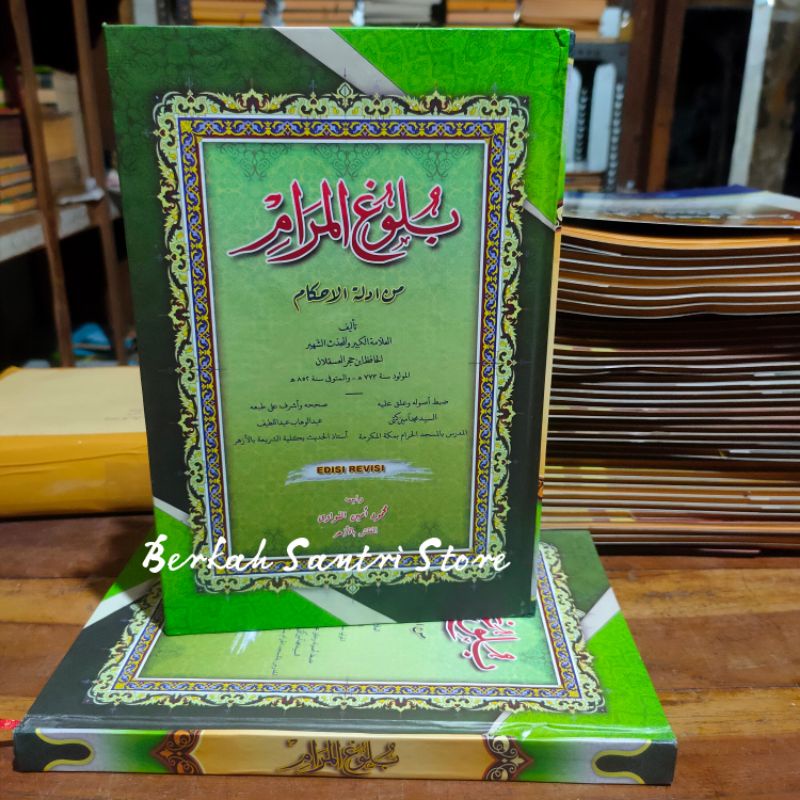 بُلُوغُ المَرَامِ
من ادلة الاحكام
تأليف
العلامة الكبير والمحدث الشهير
الحافظ ابن حجر العسقلان
المولود سنة ٧٧٣ ه - والمتوفى سنة ٨٥٢ ه
ضبط أصوله وعلق عليه
السيد محمد أمين كتبى
المدرس بالمسجد الحرام بمكة المكرمة
صححه وأشرف على طبعه
عبد الوهاب عبد اللطيف
أستاذ الحديث بكلية الشريعة بالأزهر
EDISI REVISI
راجعه
محمود أمين النواوى
المفتش بالأزهر
Berkah Santri Store
بُلُوغُ المَرَامِ